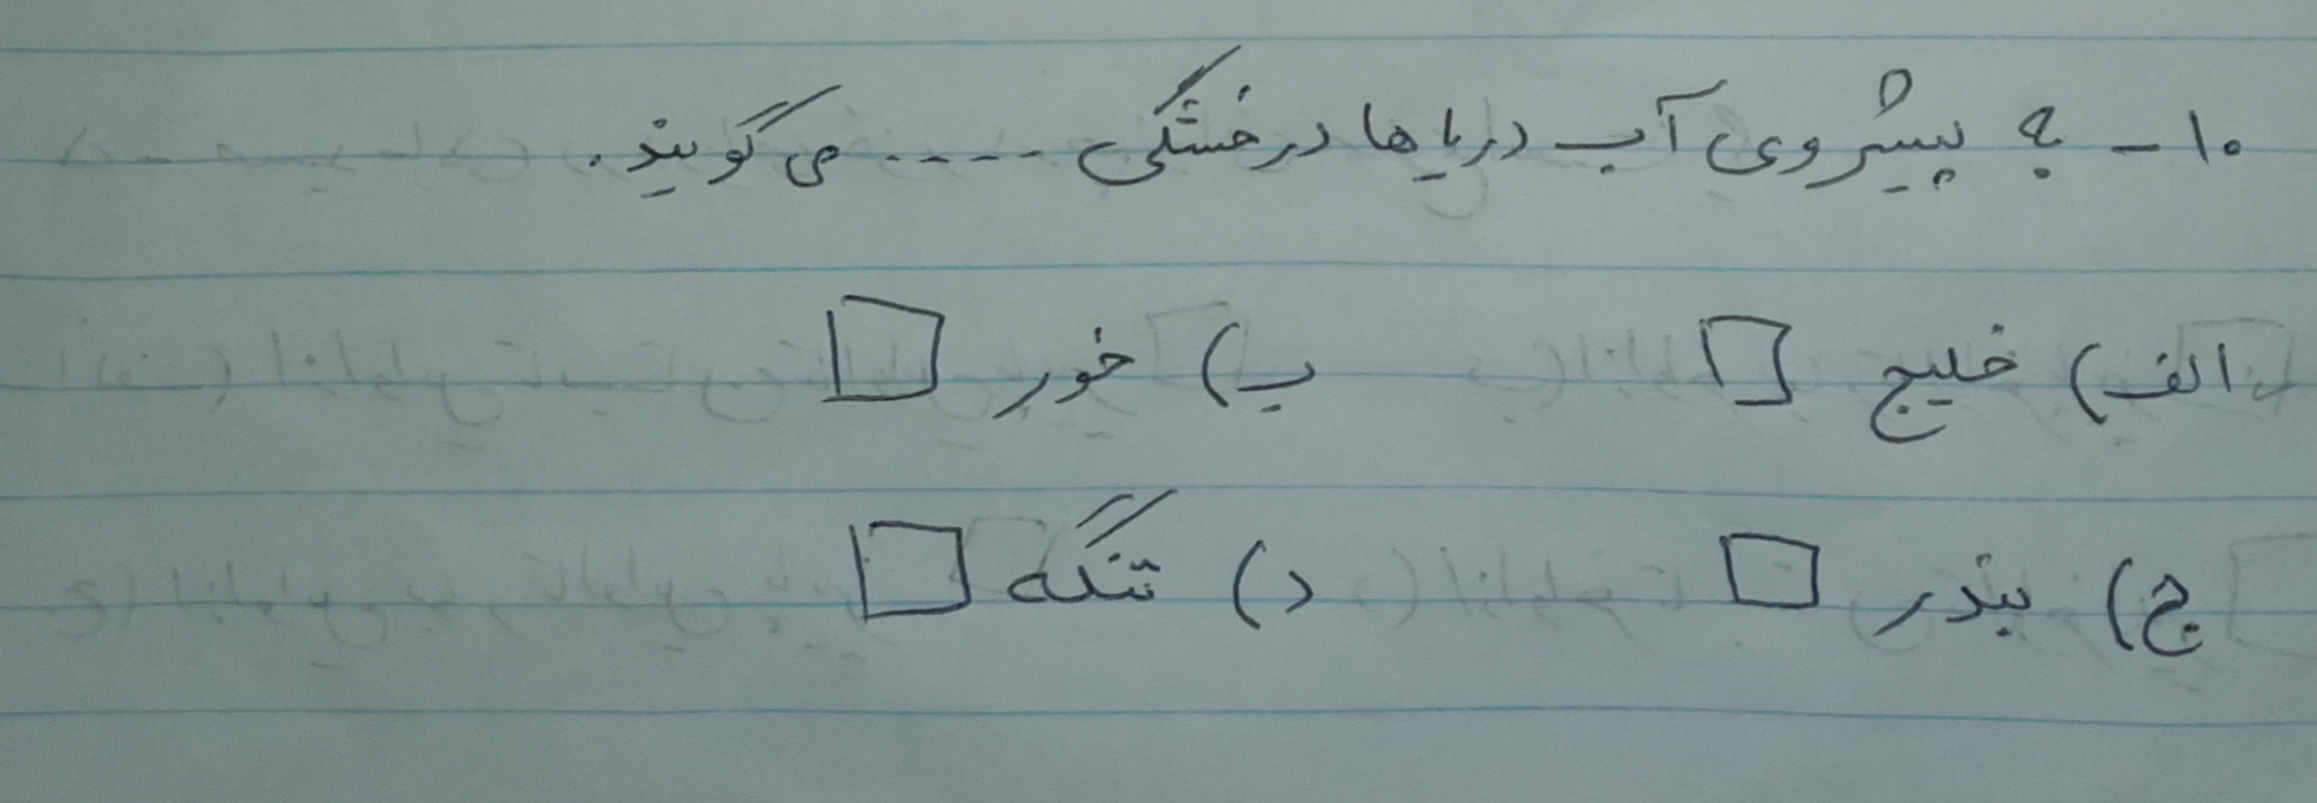 ۱۰- به پیشروی آب دریاها در خشکی ..... می گویند.
الف) خلیج □ ب) خور □
ج) بندر □ د) تنگه □